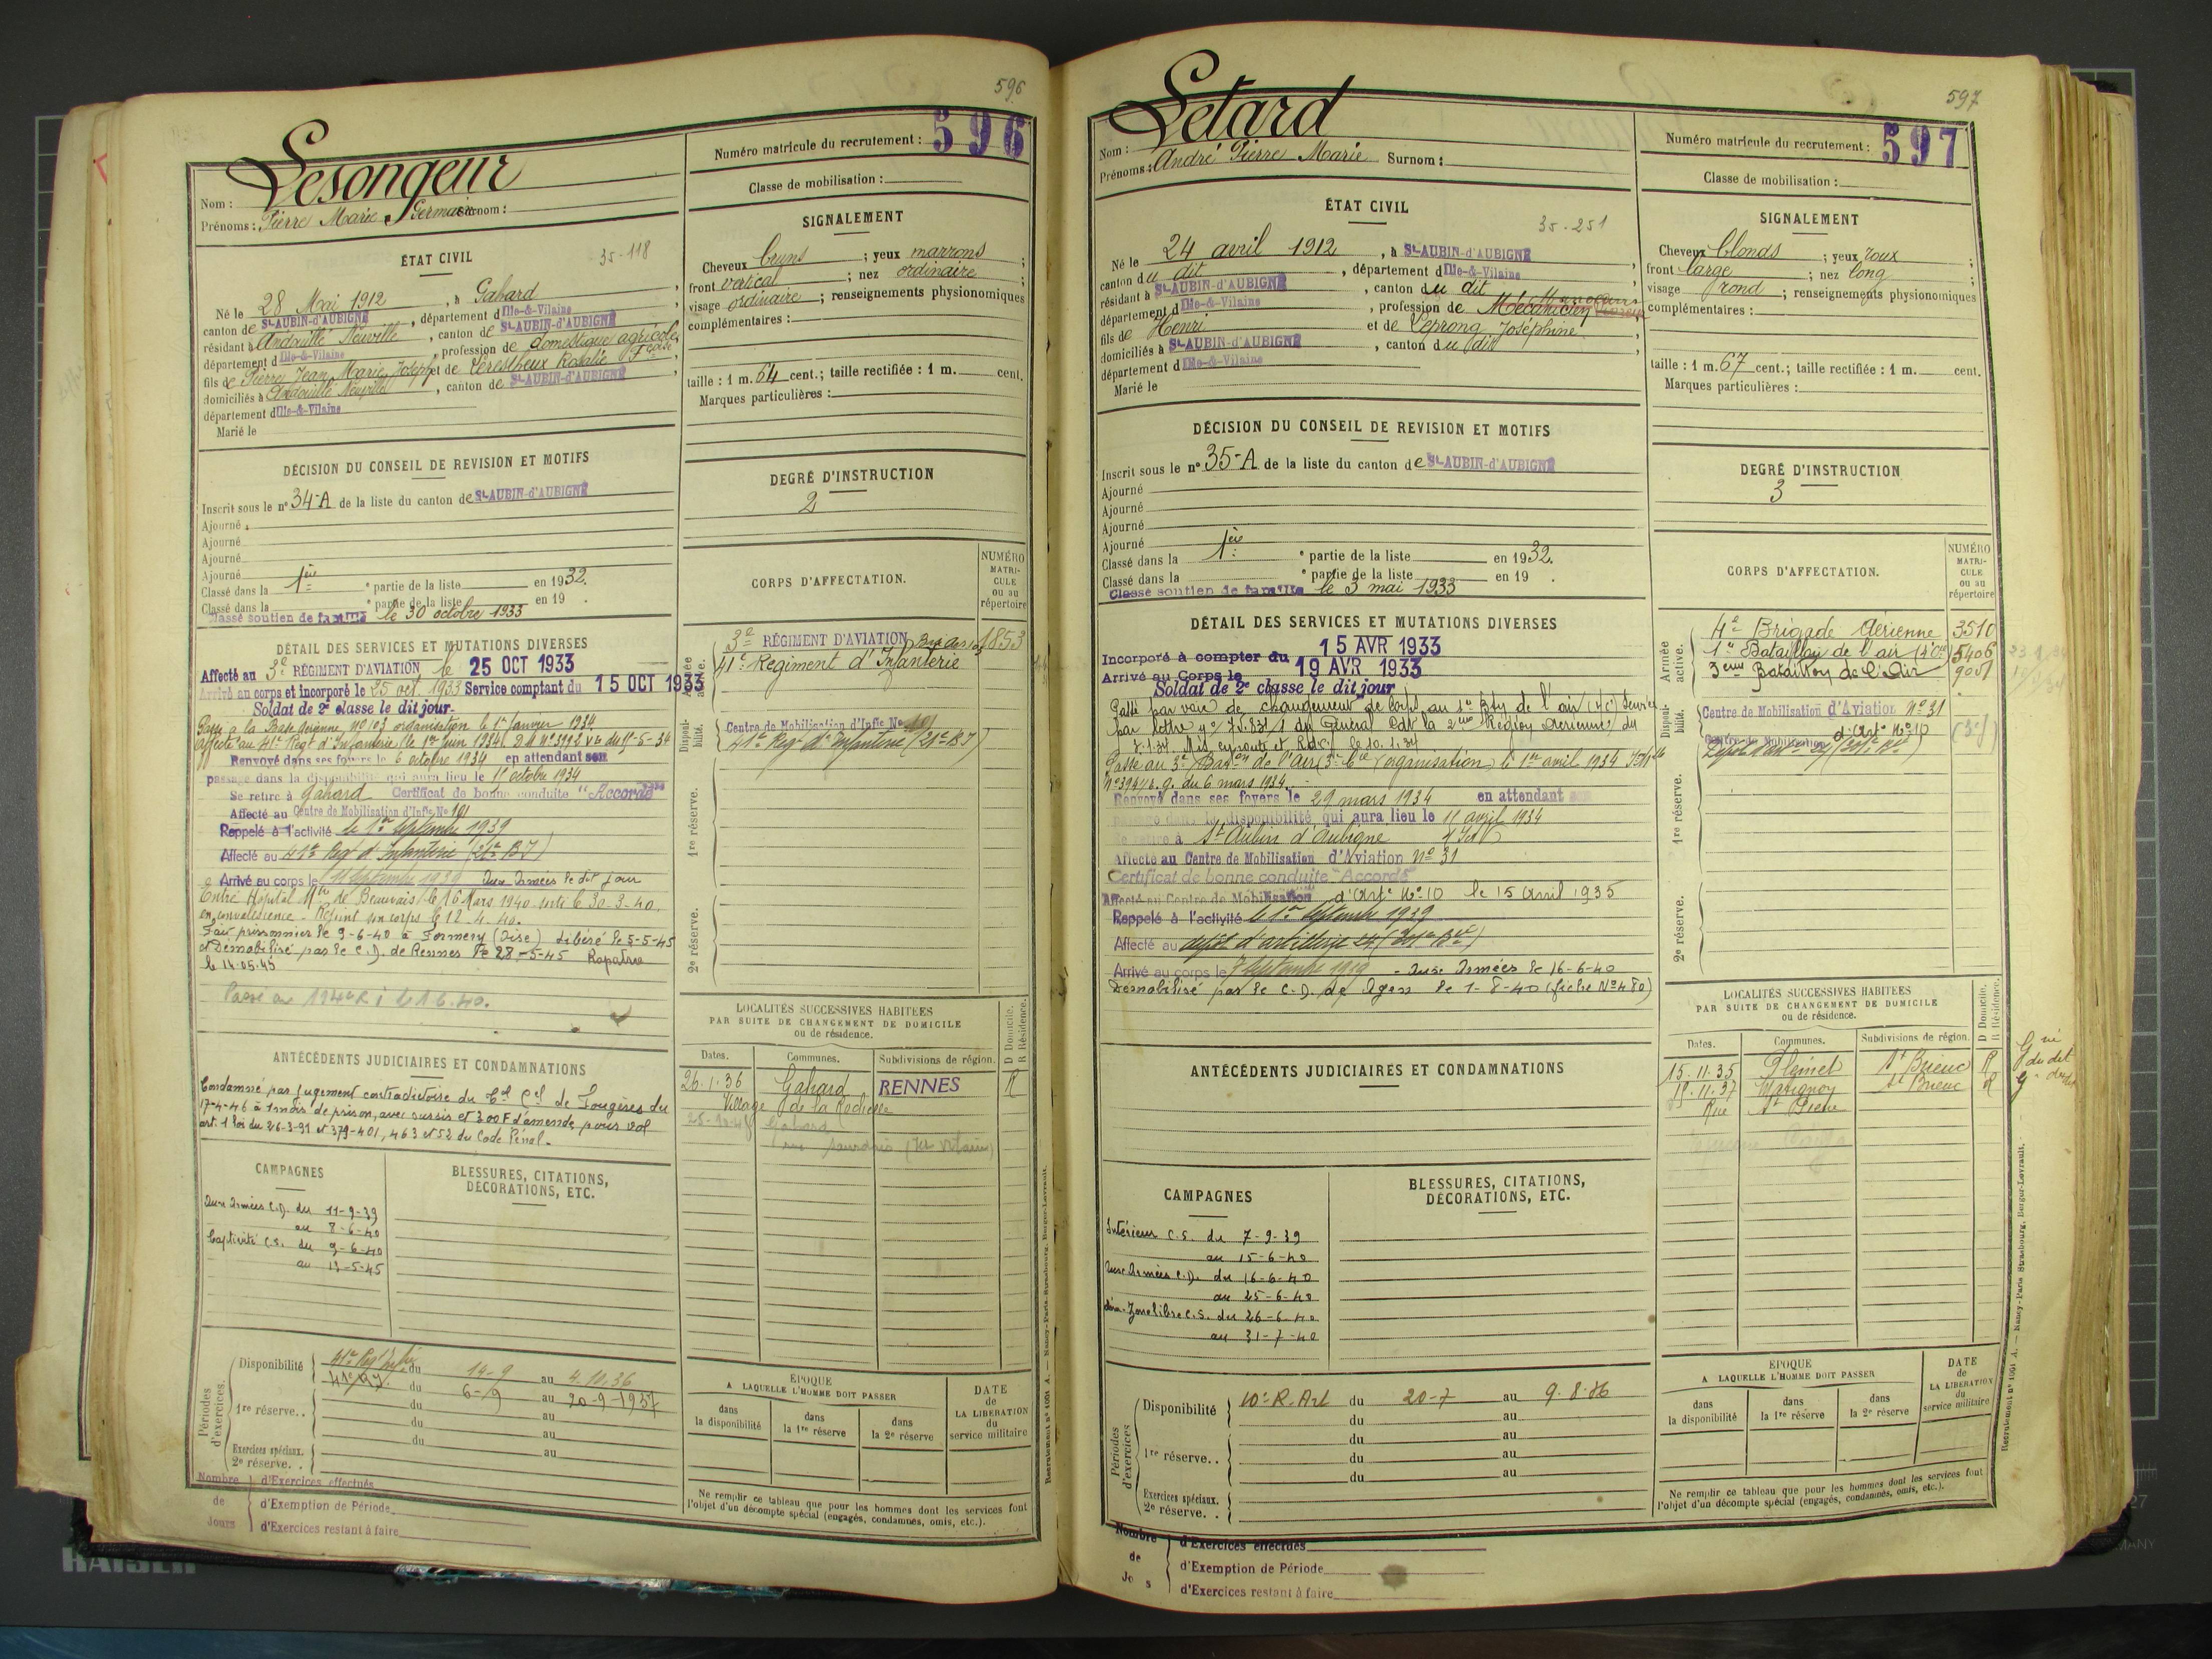 596
Lesongeur
Nom :
Prénoms : Pierre Marie Germain Surnom :
Numéro matricule du recrutement : 596
Classe de mobilisation :
ÉTAT CIVIL
35-118
Né le 28 Mai 1912, à Gahard,
canton de St-AUBIN-d'AUBIGNÉ, département d Ille-&-Vilaine
résidant à Andouillé Neuville, canton de St-AUBIN-d'AUBIGNÉ
département d Ille-&-Vilaine, profession de domestique agricole,
fils de Pierre Jean Marie Joseph et de Rosalie
domiciliés à Andouillé Neuville, canton de St-AUBIN-d'AUBIGNÉ,
département d Ille-&-Vilaine
Marié le
SIGNALEMENT
Cheveux bruns ; yeux marrons ;
front vertical ; nez ordinaire ;
visage ordinaire ; renseignements physionomiques
complémentaires :
taille : 1 m. 64 cent.; taille rectifiée : 1 m. cent.
Marques particulières :
DÉCISION DU CONSEIL DE REVISION ET MOTIFS
Inscrit sous le n° 34-A de la liste du canton de St-AUBIN-d'AUBIGNÉ
Ajourné
Ajourné
Ajourné
Ajourné
Classé dans la 1ère partie de la liste en 1932.
Classé dans la partie de la liste en 19 .
Classé soutien de famille le 30 octobre 1933
DEGRÉ D'INSTRUCTION
2
DÉTAIL DES SERVICES ET MUTATIONS DIVERSES
Affecté au 3e RÉGIMENT D'AVIATION le 25 OCT 1933
Arrivé au corps et incorporé le 25 oct. 1933 Service comptant du 15 OCT 1933
Soldat de 2e classe le dit jour
Passé à la Base Aérienne No 103 organisation le 1er Janvier 1934
Affecté au 41e Régt d'Infanterie le 1er Juin 1934
Renvoyé dans ses foyers le 6 octobre 1934 en attendant son
passage dans la disponibilité qui aura lieu le 15 octobre 1934
Se retire à Gahard Certificat de bonne conduite "Accordé"
Affecté au Centre de Mobilisation d'Infie No 101
Rappelé à l'activité le 1er Septembre 1939
Affecté au 41e Rég d'Infanterie (21e BI)
Arrivé au corps le 11 Septembre 1939 Aux Armées le dit jour
Entré Hôpital Mre de Beauvais le 16 Mars 1940 sorti le 30-3-40.
en convalescence - Rejoint son corps le 12-4-40.
Fait prisonnier le 9-6-40 à Formery (Oise) Libéré le 5-5-45
et Démobilisé par le C.D. de Rennes le 28-5-45 Rapatrié
le 14.05.45
Passé au 194e R i le 1.6.40.
CORPS D'AFFECTATION.
NUMÉRO MATRICULE ou au répertoire
Armée active.
3e RÉGIMENT D'AVIATION 1853
41e Regiment d'Infanterie
Disponibilité.
Centre de Mobilisation d'Infie No 101
41e Reg d'Infanterie (21e BI)
1re réserve.
2e réserve.
ANTÉCÉDENTS JUDICIAIRES ET CONDAMNATIONS
Condamné par jugement contradictoire du Cel de Fougères du
17-4-46 à 1 mois de prison, avec sursis et 300F d'amende pour vol
art. 1 loi du 26-3-91 et 379-401, 463 et 52 du Code Pénal.
LOCALITÉS SUCCESSIVES HABITÉES
PAR SUITE DE CHANGEMENT DE DOMICILE
ou de résidence.
D Domicile. R Résidence.
Dates. Communes. Subdivisions de région.
26.1.36 Gahard RENNES R
Village de la Rochelle
Gahard
CAMPAGNES
Aux Armées C.D. du 11-9-39
au 8-6-40
Captivité C.S. du 9-6-40
au 13-5-45
BLESSURES, CITATIONS,
DÉCORATIONS, ETC.
Périodes d'exercices.
Disponibilité du 14-9 au 4.10.36
41e R.I. du 6-9 au 20-9-1937
1re réserve.. du au
du au
du au
Exercices spéciaux. au
2e réserve. .
Nombre de Jours
d'Exercices effectués
d'Exemption de Période
d'Exercices restant à faire
ÉPOQUE
A LAQUELLE L'HOMME DOIT PASSER
dans la disponibilité
dans la 1re réserve
dans la 2e réserve
DATE de LA LIBÉRATION du service militaire
Ne remplir ce tableau que pour les hommes dont les services font
l'objet d'un décompte spécial (engagés, condamnés, omis, etc.).
Recrutement n° 1061 A. — Nancy-Paris-Strasbourg, Berger-Levrault.
597
Letard
Nom :
Prénoms : André Pierre Marie Surnom :
Numéro matricule du recrutement : 597
Classe de mobilisation :
ÉTAT CIVIL
35-251
Né le 24 avril 1912, à St-AUBIN-d'AUBIGNÉ,
canton du dit, département d Ille-&-Vilaine
résidant à St-AUBIN-d'AUBIGNÉ, canton du dit
département d Ille-&-Vilaine, profession de Mécanicien
fils de Henri et de Leprong Joséphine
domiciliés à St-AUBIN-d'AUBIGNÉ, canton du dit,
département d Ille-&-Vilaine
Marié le
SIGNALEMENT
Cheveux blonds ; yeux roux ;
front large ; nez long ;
visage rond ; renseignements physionomiques
complémentaires :
taille : 1 m. 67 cent.; taille rectifiée : 1 m. cent.
Marques particulières :
DÉCISION DU CONSEIL DE REVISION ET MOTIFS
Inscrit sous le n° 35-A de la liste du canton de St-AUBIN-d'AUBIGNÉ
Ajourné
Ajourné
Ajourné
Ajourné
Classé dans la 1ère partie de la liste en 1932.
Classé dans la partie de la liste en 19 .
Classé soutien de famille le 3 mai 1933
DEGRÉ D'INSTRUCTION
3
DÉTAIL DES SERVICES ET MUTATIONS DIVERSES
Incorporé à compter du 15 AVR 1933
Arrivé au Corps le 19 AVR 1933
Soldat de 2e classe le dit jour
Passé par voie de changement de corps au 1er Bon de l'air
par lettre no du Général Cdt la 2me Région Aérienne du
8.1.34. le 10.1.34
Passé au 3e Baton de l'Air (organisation) le 1er avril 1934
du 6 mars 1934.
Renvoyé dans ses foyers le 29 mars 1934 en attendant son
passage dans la disponibilité qui aura lieu le 15 avril 1934
Se retire à St Aubin d'Aubigné
Affecté au Centre de Mobilisation d'Aviation No 31
Certificat de bonne conduite "Accordé"
Affecté au Centre de Mobilisation d'Artie No 10 le 15 Avril 1935
Rappelé à l'activité le 1er Septembre 1939
Affecté au dépôt d'artillerie 24
Arrivé au corps le 7 Septembre 1939 - Aux Armées le 16-6-40
Démobilisé par le C.D. de Agen le 1-8-40 (fiche No 480)
CORPS D'AFFECTATION.
NUMÉRO MATRICULE ou au répertoire
Armée active.
4e Brigade Aérienne 3510
1er Bataillon de l'air 5406
3eme Bataillon de l'Air 9001
Disponibilité.
Centre de Mobilisation d'Aviation No 31
Centre de Mobilisation d'Art No 10
1re réserve.
2e réserve.
ANTÉCÉDENTS JUDICIAIRES ET CONDAMNATIONS
LOCALITÉS SUCCESSIVES HABITÉES
PAR SUITE DE CHANGEMENT DE DOMICILE
ou de résidence.
D Domicile. R Résidence.
Dates. Communes. Subdivisions de région.
15.11.35 Plémet St Brieuc R
18.11.37 Matignon St Brieuc R
Rue St Pierre
CAMPAGNES
Intérieur C.S. du 7-9-39
au 15-6-40
Aux Armées C.D. du 16-6-40
au 25-6-40
Zone libre C.S. du 26-6-40
au 31-7-40
BLESSURES, CITATIONS,
DÉCORATIONS, ETC.
Périodes d'exercices
Disponibilité 10e R. Art du 20-7 au 9.8.36
du au
1re réserve.. du au
du au
du au
Exercices spéciaux.
2e réserve. .
Nombre de Jours
d'Exercices effectués
d'Exemption de Période
d'Exercices restant à faire
ÉPOQUE
A LAQUELLE L'HOMME DOIT PASSER
dans la disponibilité
dans la 1re réserve
dans la 2e réserve
DATE de LA LIBÉRATION du service militaire
Ne remplir ce tableau que pour les hommes dont les services font
l'objet d'un décompte spécial (engagés, condamnés, omis, etc.).
Recrutement n° 1061 A. — Nancy-Paris-Strasbourg, Berger-Levrault.